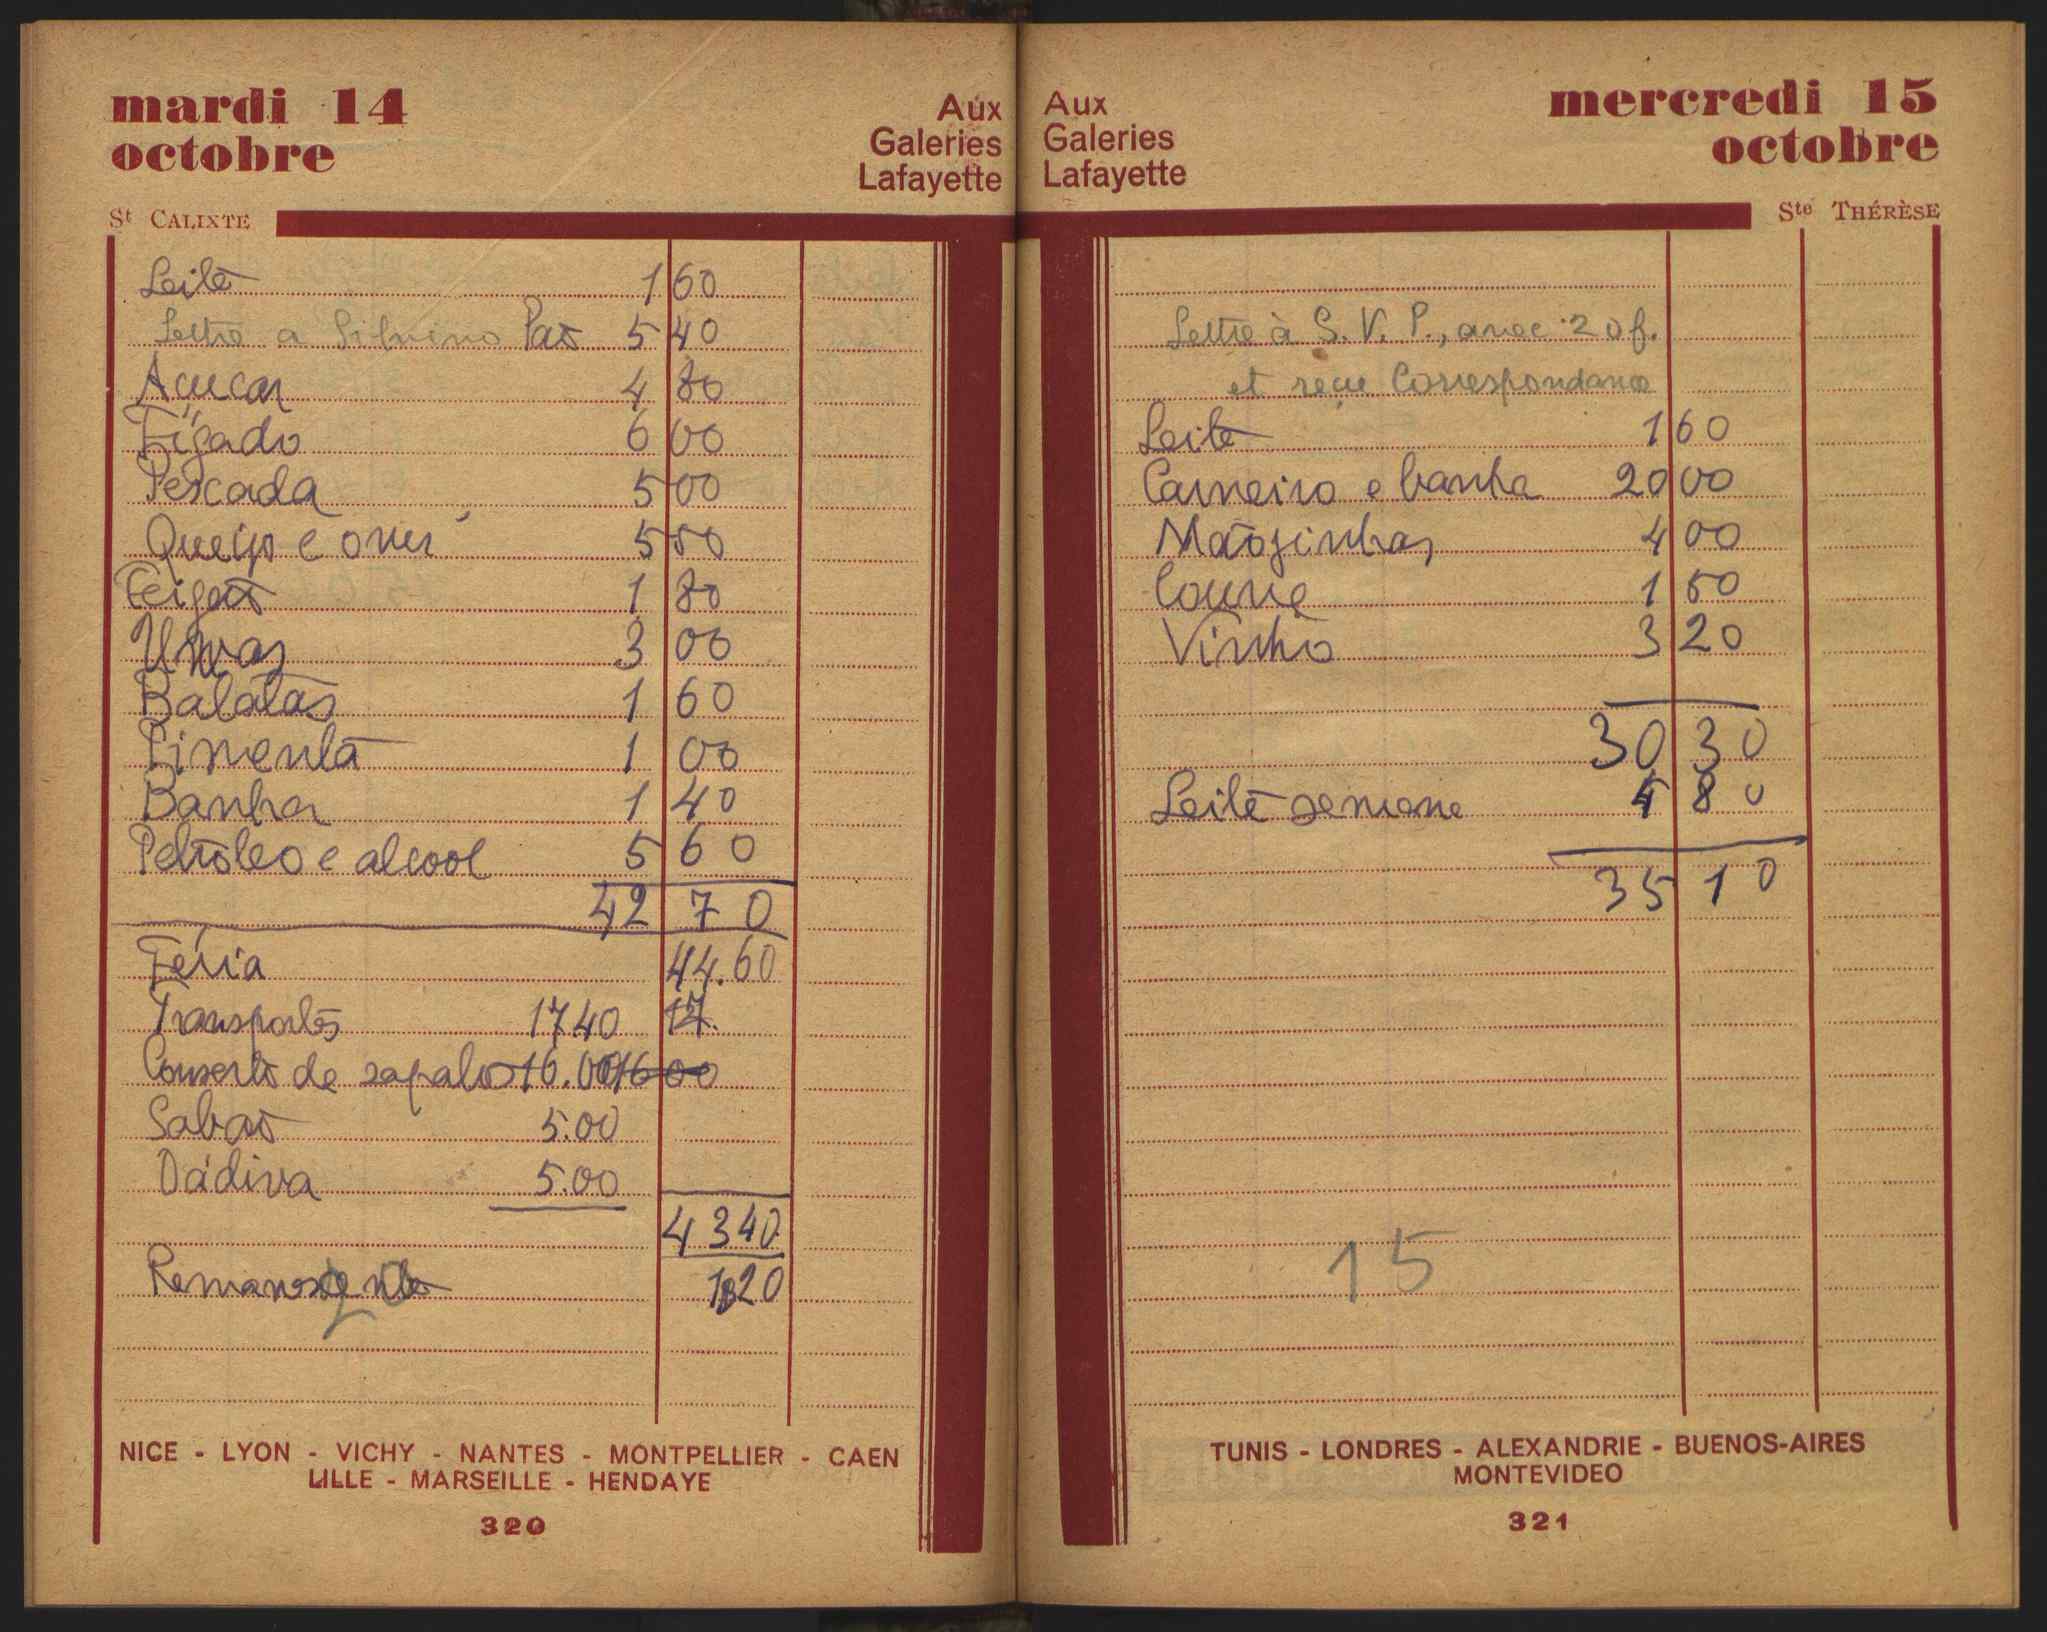 mardi 14
octobre
Aux
Galeries
Lafayette
St CALIXTE
Leite 1 60
Lettre a Silvino Pão 5 40
Açucar 4 80
Fígado 6 00
Pescada 5 00
Queijo e 5 50
Feijão 1 80
Uvas 3 00
Batatas 1 60
Pimenta 1 00
Banha 1 40
Petroleo e alcool 5 60
42 70
Féria 44.60
Transportes 17 40 17.
Conserto de sapatos 16.00 16 00
Sabão 5.00
Dádiva 5.00
43 40
Remanescente 1 20
NICE - LYON - VICHY - NANTES - MONTPELLIER - CAEN
LILLE - MARSEILLE - HENDAYE
320
Aux
Galeries
Lafayette
mercredi 15
octobre
Ste THÉRÈSE
Lettre à S. V. P., avec 20 f.
et reçue Correspondance
Leite 1 60
Carneiro e banha 20 00
Mãozinhas 4 00
Couve 1 50
Vinho 3 20
30 30
Leite semane 4 80
35 10
15
TUNIS - LONDRES - ALEXANDRIE - BUENOS-AIRES
MONTEVIDEO
321